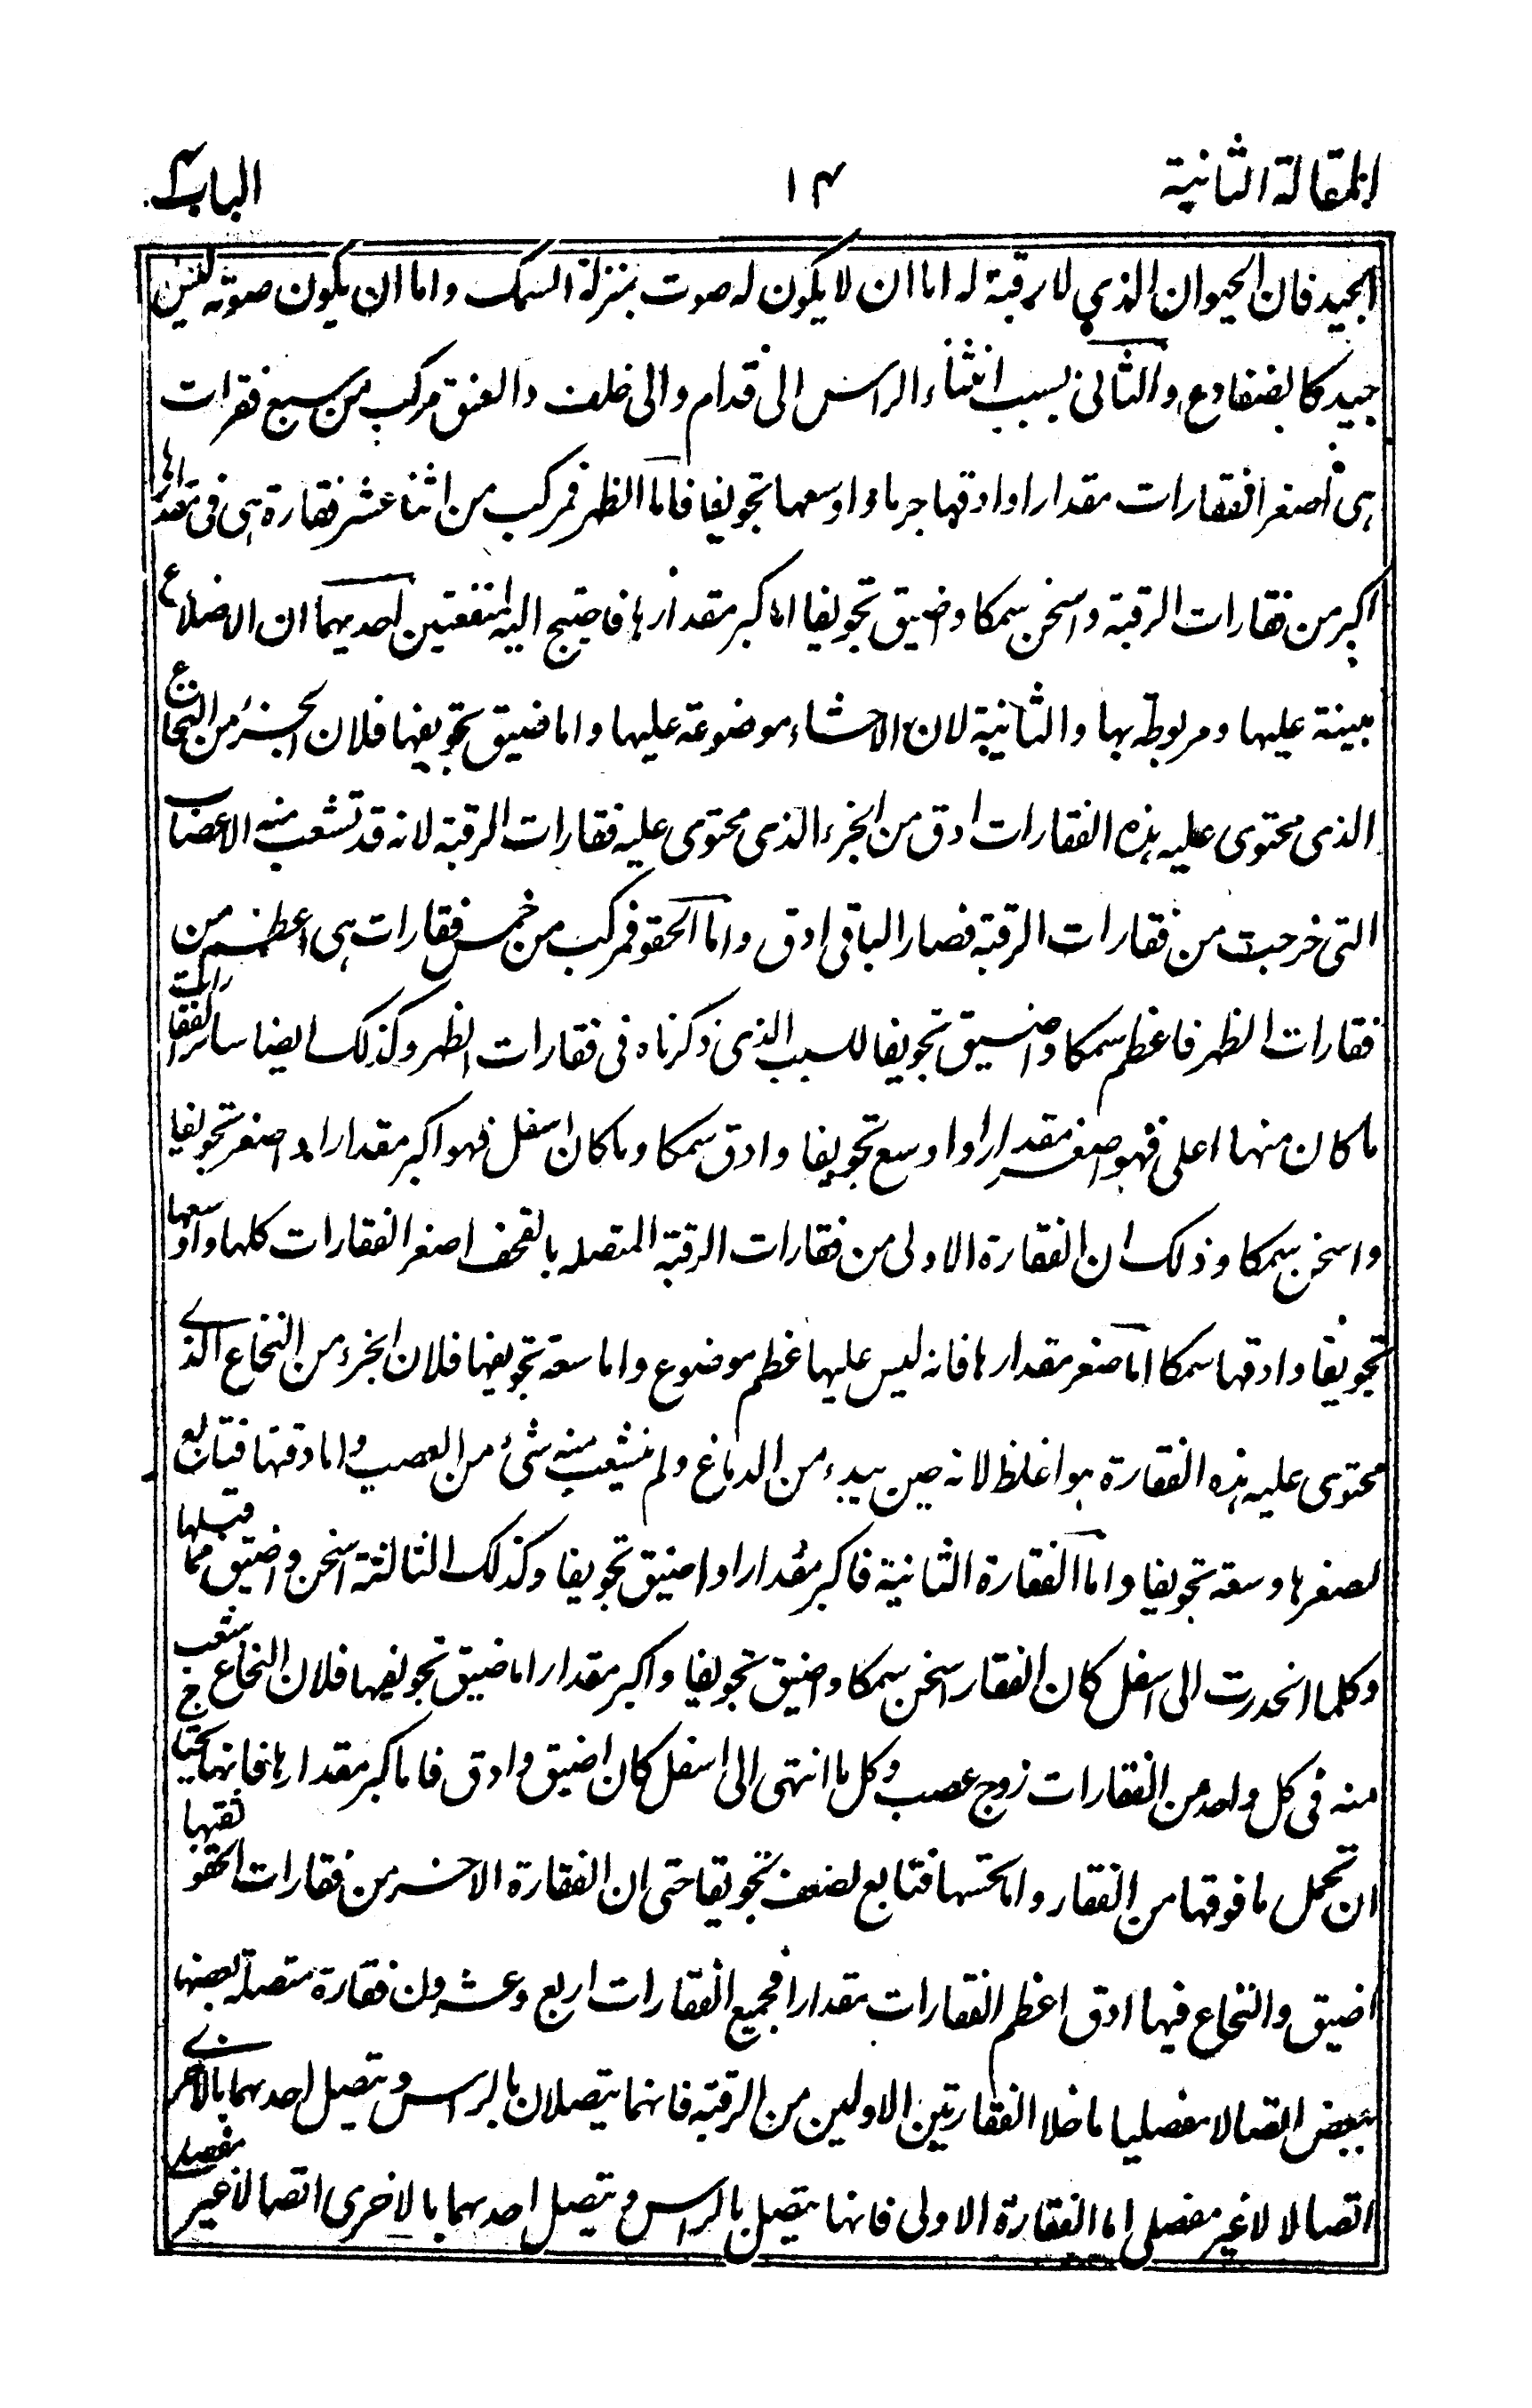 المقالة الثانية
١٤
الباب
الجيد فان الحيوان الذي لا رقبة له اما ان لا يكون له صوت بمنزلة السمك واما ان يكون صوته ليس
جيد كالضفادع والثانى بسبب انثناء الراس الى قدام والى خلف والعنق مركب من سبع فقرات
هى اصغر الفقارات مقدارا وادقها جرما واوسعها تجويفا فاما الظهر فمركب من اثنا عشر فقارة هى فى مقدارها
اكبر من فقارات الرقبة واسخن سمكا واضيق تجويفا اما كبر مقدارها فاحتيج اليه لمنفعتين احديهما ان الاضلاع
مبينة عليها ومربوطة بها والثانية لان الاحشاء موضوعة عليها واما ضيق تجويفها فلان الجزء من النخاع
الذى محتوى عليه هذه الفقارات ادق من الجزء الذى محتوى عليه فقارات الرقبة لانه قد تشعب منه الاعصاب
التى خرجت من فقارات الرقبة فصار الباقى ادق واما الحقو فمركب من خمس فقارات هى اعظم من
فقارات الظهر فاعظم سمكا واضيق تجويفا للسبب الذى ذكرناه فى فقارات الظهر وكذلك ايضا سائر الفقارات
ما كان منها اعلى فهو اصغر مقدارا واوسع تجويفا وادق سمكا وما كان اسفل فهو اكبر مقدارا واصغر تجويفا
واسخن سمكا وذلك ان الفقارة الاولى من فقارات الرقبة المتصلة بالقحف اصغر الفقارات كلها واوسعها
تجويفا وادقها سمكا اما صغر مقدارها فانه ليس عليها عظم موضوع واما سعة تجويفها فلان الجزء من النخاع الذى
محتوى عليه هذه الفقارة هو اغلظ لانه حين يبدء من الدماغ ولم ينشعب منه شئ من العصب واما دقتها فتابع
لصغرها وسعة تجويفا واما الفقارة الثانية فاكبر مقدارا واضيق تجويفا وكذلك الثالثة اسخن واضيق مما قبلها
وكلما انحدرت الى اسفل كان الفقار اسخن سمكا واضيق تجويفا واكبر مقدارا اما ضيق تجويفها فلان النخاع شعب
منه فى كل واحد من الفقارات زوج عصب وكل ما انتهى الى اسفل كان اضيق وادق فاما كبر مقدارها فانها تحتاج
ان تحمل ما فوقها من الفقار واما تحتها فتابع لضعف تجويفا حتى ان الفقارة الاخيرة من فقارات الحقو ثقبها
اضيق والنخاع فيها ادق اعظم الفقارات مقدارا فجميع الفقارات اربع وعشرون فقارة متصلة بعضها
ببعض اتصالا مفصليا ما خلا الفقارتين الاولين من الرقبة فانهما يتصلان بالراس ويتصل احدهما بالاخرى
اتصالا لا غير مفصلى اما الفقارة الاولى فانها يتصل بالراس ويتصل احدهما بالاخرى اتصالا غير مفصلى